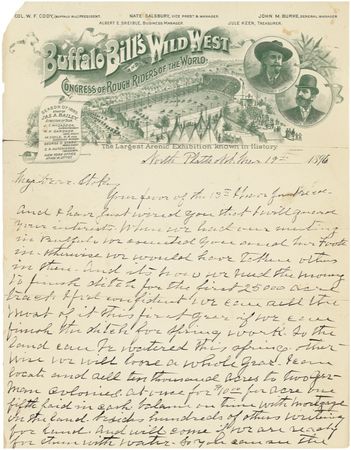 COL. W. F. CODY, (BUFFALO BILL) PRESIDENT. NATE SALSBURY, VICE PREST & MANAGER. JOHN M. BURKE, GENERAL MANAGER.
ALBERT E. SHEIBLE, BUSINESS MANAGER. JULE KEEN, TREASURER.
Buffalo Bill's Wild West
AND
Congress of Rough Riders of the World.
SEASON OF 1896
JAS. A. BAILEY
The Largest Arenic Exhibition known in History
North Platte Neb Mar 19th 1896
My Dear
Your favor of the 13th
And I have just wired you that I will guard
your interests. When we had our meeting
in we counted you and Mr Foote
in otherwise we would have taken others
in then. And its now we need the money
to finish ditch for the first 25000 acre
tract. I feel confident we can sell the
most of it this first year if we can
finish the ditch for Spring work so the
land can be watered this spring. Other
wise we will loose a whole year. I can
locate and sell ten thousand acres to two
man colonies at once for per acre one
fifth paid in cash balance on time with mortgage
on the land. besides hundreds of others writing
for land. And will come if we are ready
for them with water. So you can see the